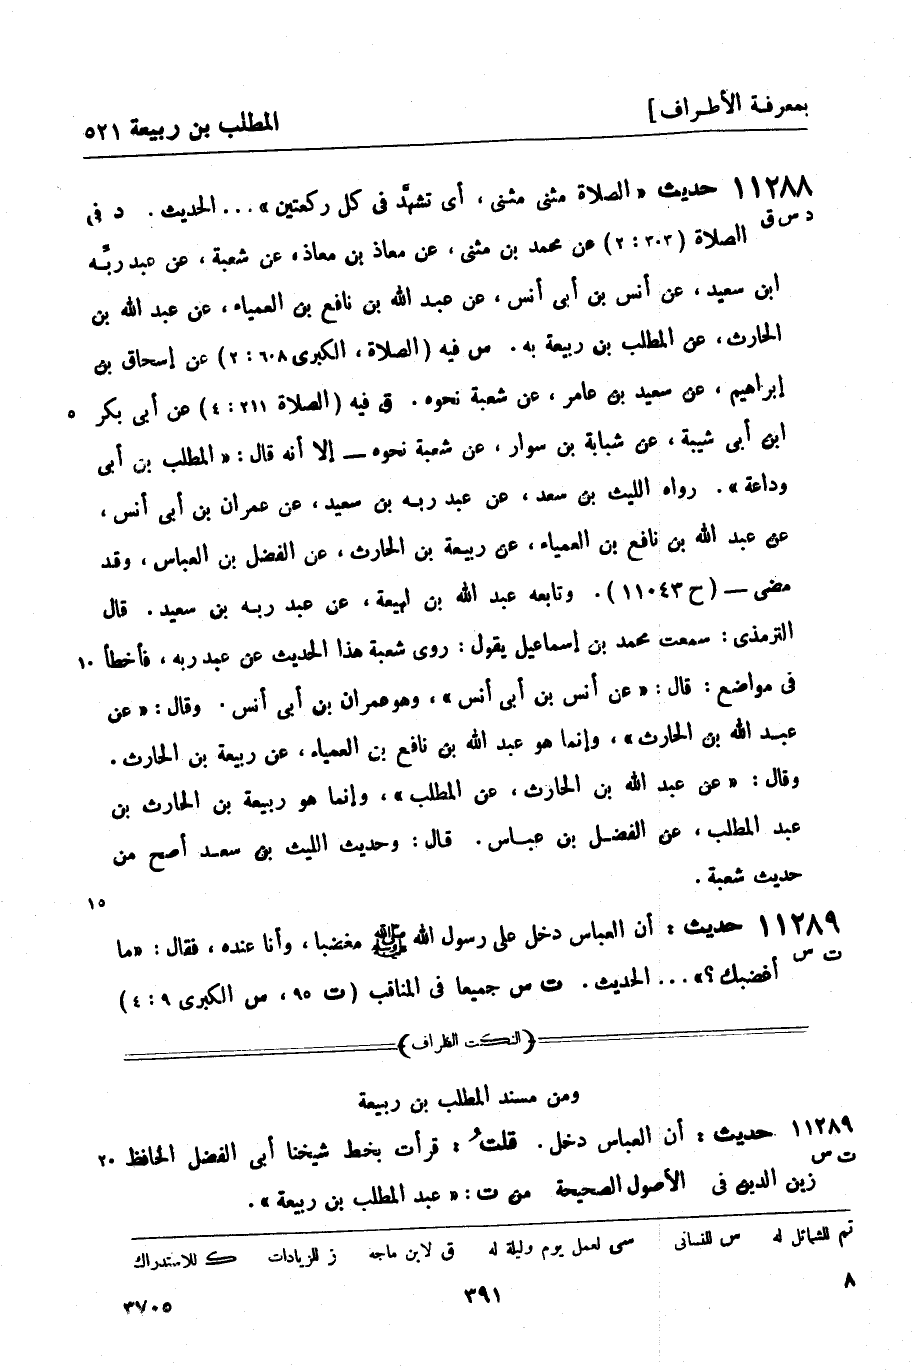 بمعرفة الأطراف]
المطلب بن ربيعة ٥٢١
١١٢٨٨ حديث «الصلاة مثنى مثنى ، أى تشهَّد فى كل ركعتين» ... الحديث . د فى
د س ق
الصلاة (٣٠٣ : ٢) عن محمد بن مثنى ، عن معاذ بن معاذ، عن شعبة ، عن عبد ربَّه
ابن سعيد ، عن أنس بن أبى أنس ، عن عبد الله بن نافع بن العمياء ، عن عبد الله بن
الحارث ، عن المطلب بن ربيعة به . س فيه (الصلاة ، الكبرى ٦٠٨ : ٢) عن إسحاق بن
إبراهيم ، عن سعيد بن عامر ، عن شعبة نحوه . ق فيه (الصلاة ٢١١ : ٤) عن أبى بكر
٥
ابن أبى شيبة ، عن شبابة بن سوار ، عن شعبة نحوه ـــ إلا أنه قال : «المطلب بن أبى
وداعة» . رواه الليث بن سعد ، عن عبد ربه بن سعيد ، عن عمران بن أبى أنس ،
عن عبد الله بن نافع بن العمياء ، عن ربيعة بن الحارث ، عن الفضل بن العباس ، وقد
مضى ـــ (ح ١١٠٤٣) . وتابعه عبد الله بن لهيعة ، عن عبد ربه بن سعيد . قال
الترمذى : سمعت محمد بن إسماعيل يقول : روى شعبة هذا الحديث عن عبد ربه ، فأخطأ
١٠
فى مواضع : قال : «عن أنس بن أبى أنس» ، وهو عمران بن أبى أنس . وقال : «عن
عبد الله بن الحارث» ، وإنما هو عبد الله بن نافع بن العمياء ، عن ربيعة بن الحارث .
وقال : «عن عبد الله بن الحارث ، عن المطلب» ، وإنما هو ربيعة بن الحارث بن
عبد المطلب ، عن الفضل بن عباس . قال : وحديث الليث بن سعد أصح من
حديث شعبة .
١٥
١١٢٨٩ حديث : أن العباس دخل على رسول الله ﷺ مغضبا ، وأنا عنده ، فقال : «ما
ت س
أغضبك ؟» ... الحديث . ت س جميعا فى المناقب (ت ٩٥ ، س الكبرى ٩ : ٤)
(النكت الظراف)
ومن مسند المطلب بن ربيعة
١١٢٨٩ حديث : أن العباس دخل . قلتُ : قرأت بخط شيخنا أبى الفضل الحافظ
٢٠
ت س
زين الدين فى الأصول الصحيحة من ت : «عبد المطلب بن ربيعة» .
تم للشمائل له س للنسائى سى لعمل يوم وليلة له ق لابن ماجه ز للزيادات ك للاستدراك
٨
٣٩١
٣٧٠٥